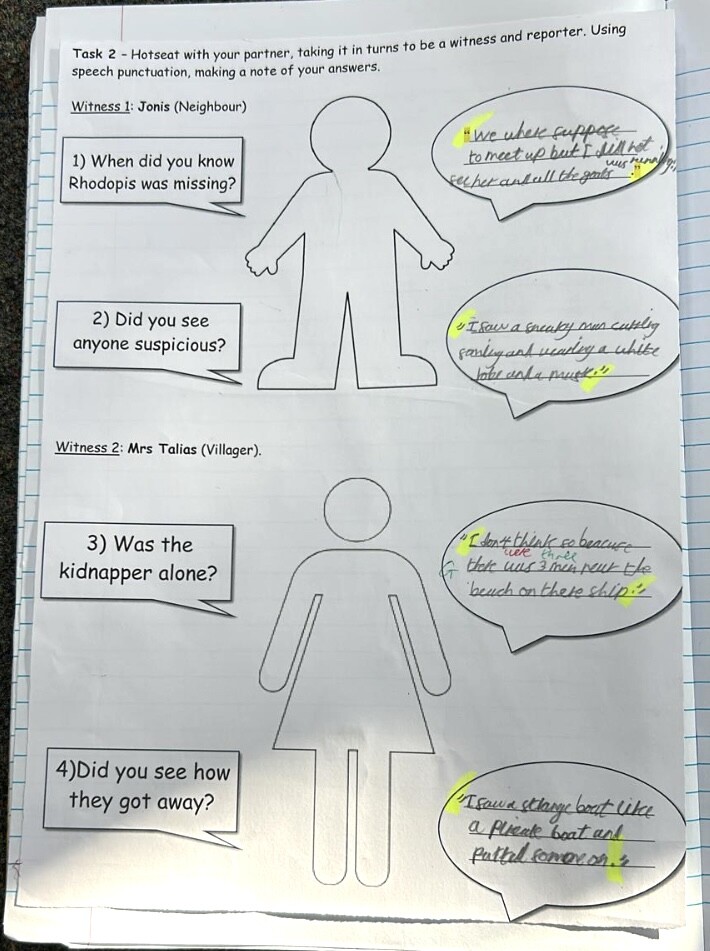 Task 2 – Hotseat with your partner, taking it in turns to be a witness and reporter. Using
speech punctuation, making a note of your answers.
Witness 1: Jonis (Neighbour)
1) When did you know
Rhodopis was missing?
"We where suppose
to meet up but I did not
see her and all the goats was running."
2) Did you see
anyone suspicious?
"I saw a sneaky man
and wearing a white
robe and a mask."
Witness 2: Mrs Talias (Villager).
3) Was the
kidnapper alone?
"I don't think so because
were three
there was 3 men near the
beach on there ship."
4)Did you see how
they got away?
"I saw a strange boat like
a pirate boat and
someone on."